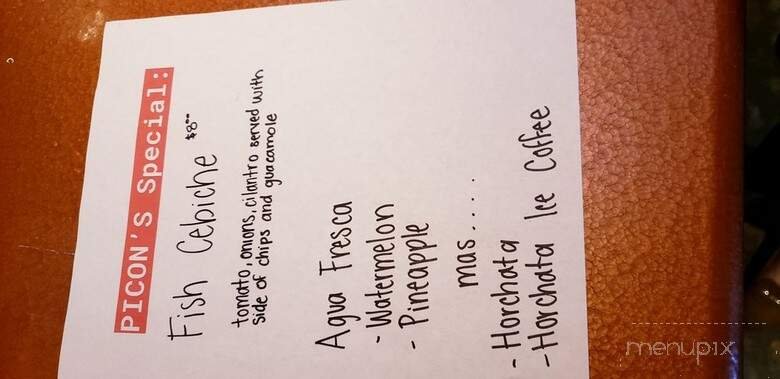 PICON'S Special:
Fish Cebiche $8⁰⁰
tomato, onions, cilantro served with
side of chips and guacamole
Agua Fresca
- Watermelon
- Pineapple
mas....
- Horchata
- Horchata Ice Coffee
menupix